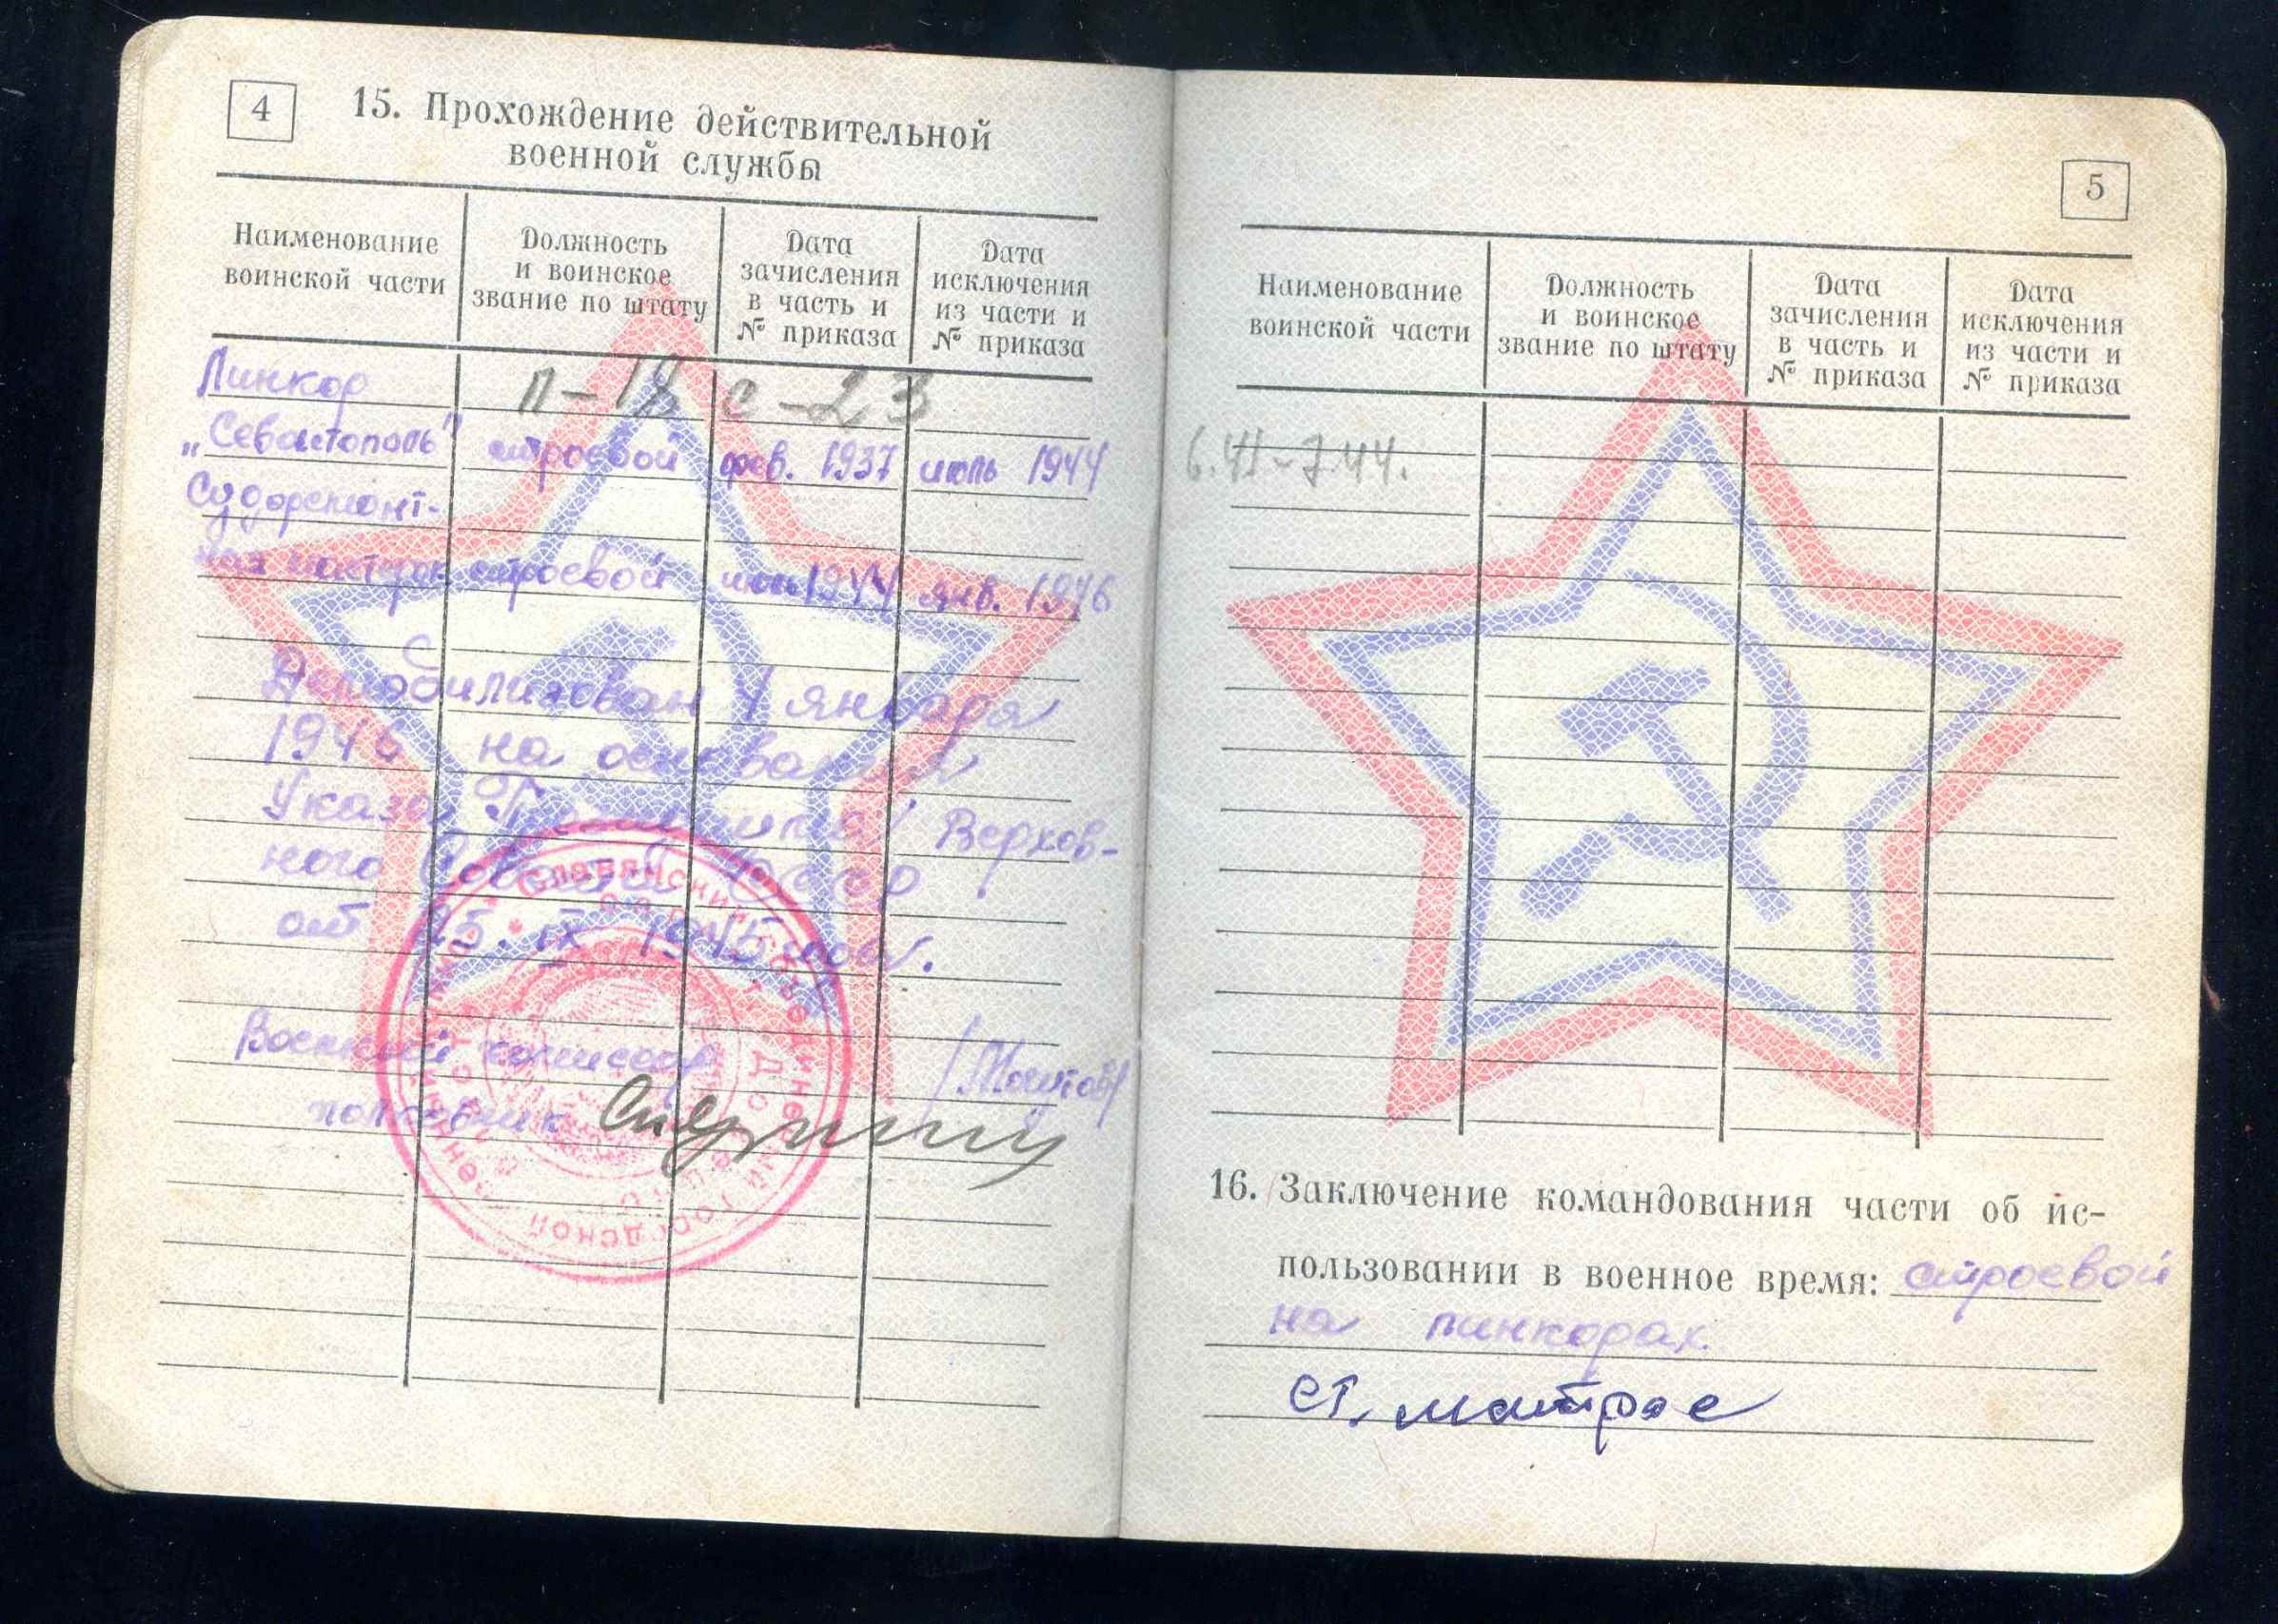 4
15. Прохождение действительной
военной службы
Наименование
воинской части
Должность
и воинское
звание по штату
Дата
зачисления
в часть и
№ приказа
Дата
исключения
из части и
№ приказа
Линкор
п-18 с-23
„Севастополь" строевой фев. 1937 июль 1944
Судоремонт-
ная строевой июль 1944 янв. 1946
Демобилизован 1 января
1946 на основании
Указа Президиума Верхов-
ного Совета СССР
от 25.IX 1945 года.
Военный комиссар
полковник
5
Наименование
воинской части
Должность
и воинское
звание по штату
Дата
зачисления
в часть и
№ приказа
Дата
исключения
из части и
№ приказа
6.41-7.44.
16. Заключение командования части об ис-
пользовании в военное время: строевой
на линкорах.
ст. матрос